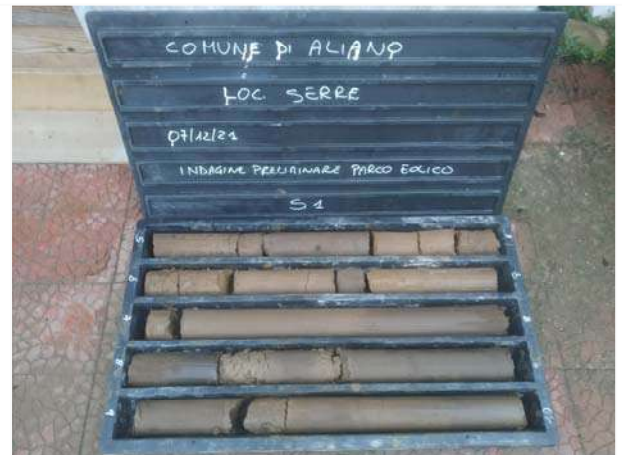 COMUNE DI ALIANO
LOC. SERRE
07/12/21
INDAGINE PRELIMINARE PARCO EOLICO
S1
5
6
7
8
9